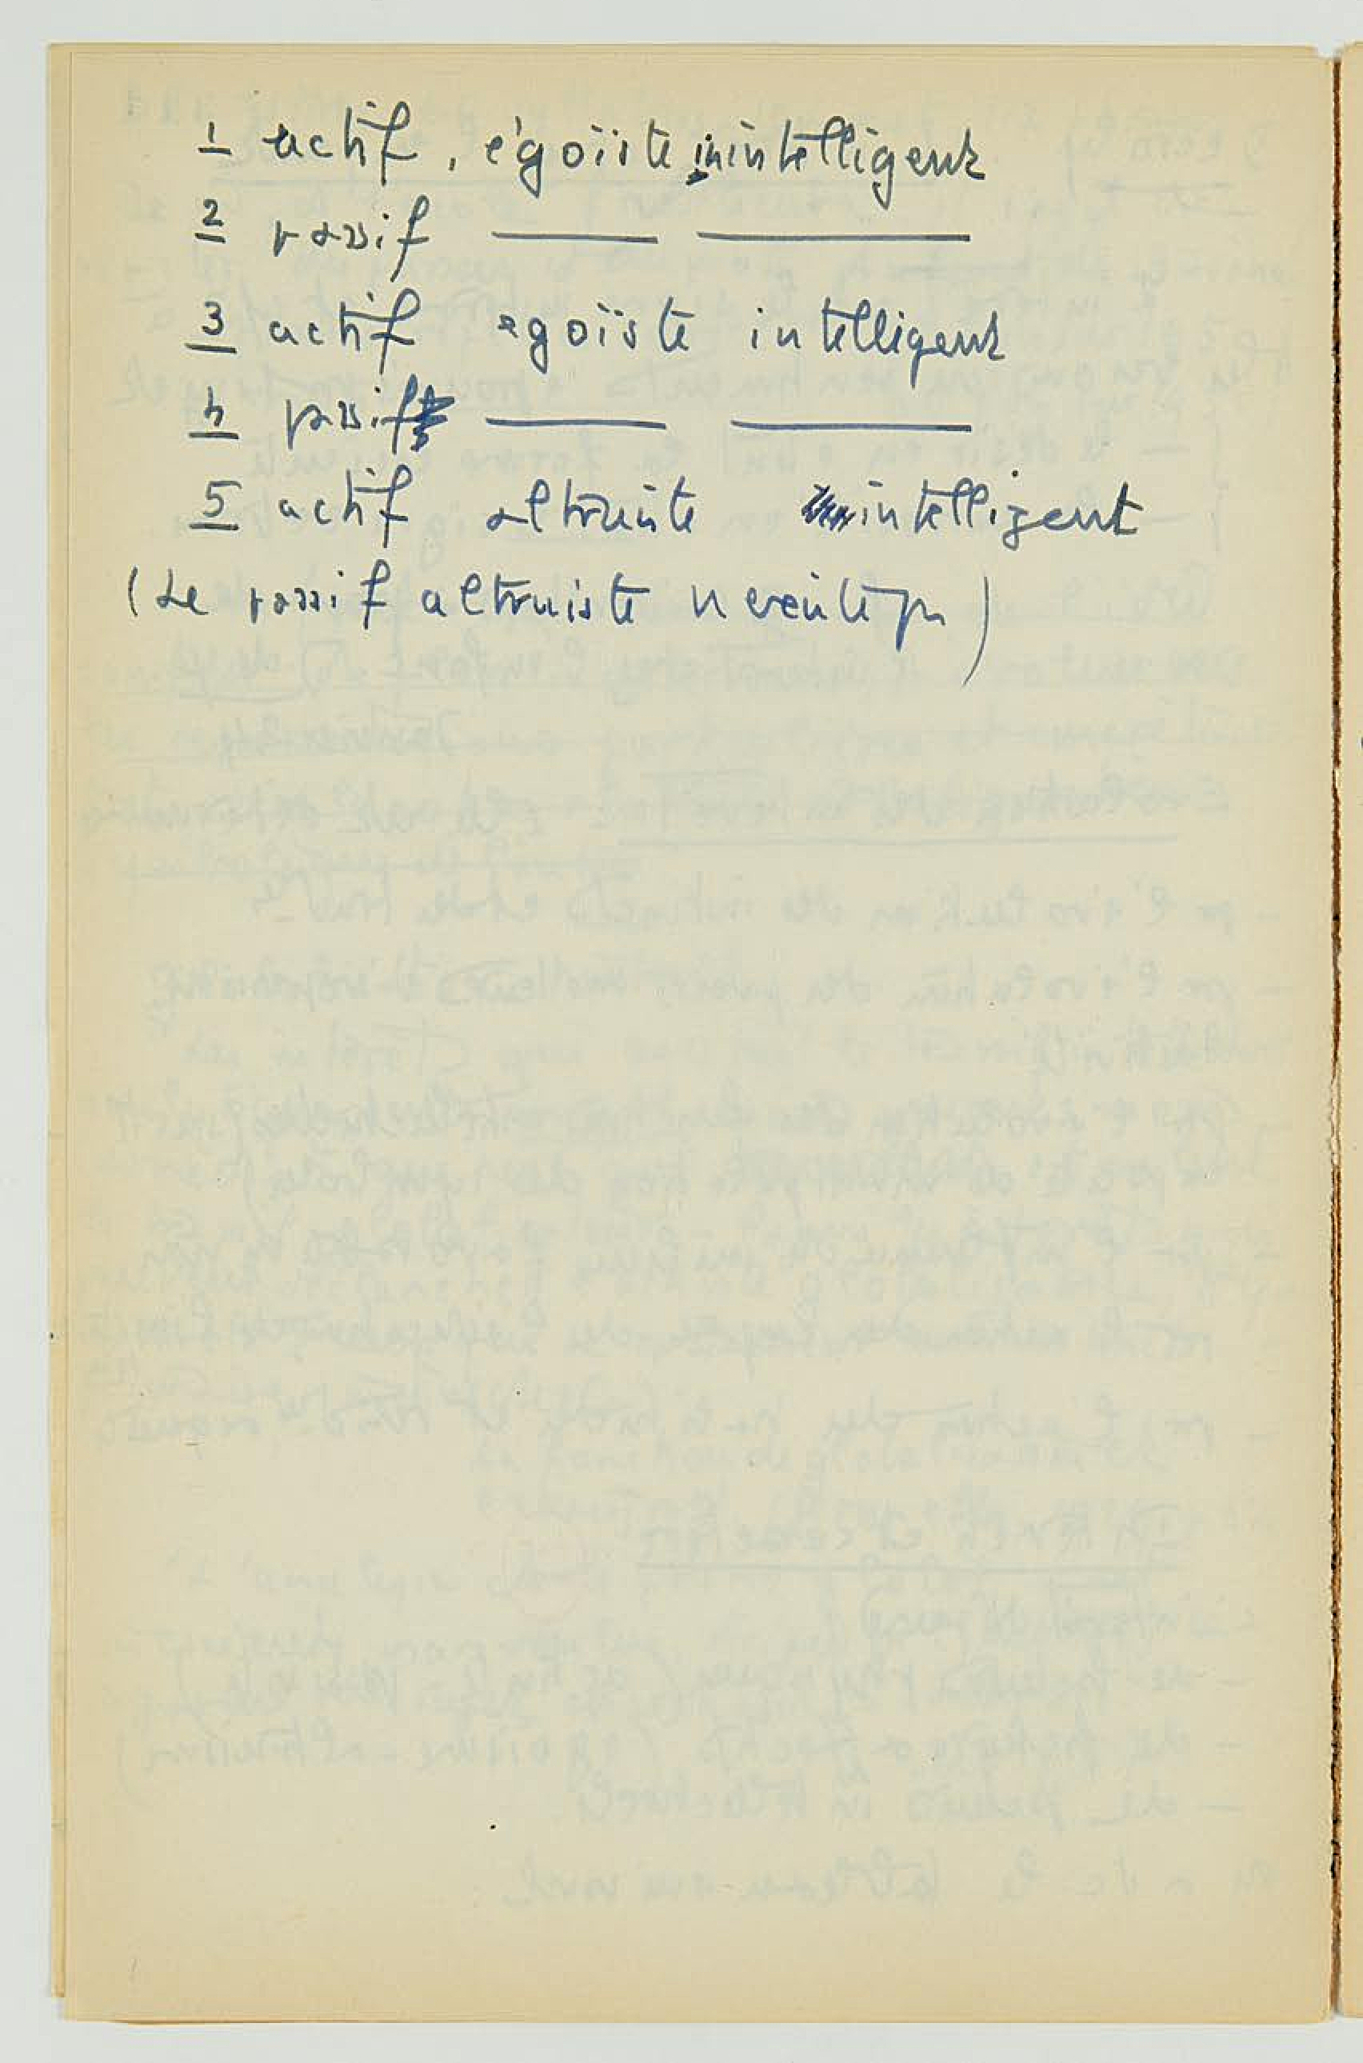 1 actif, égoïste, inintelligent
2 passif ——— ———
3 actif égoïste intelligent
4 passif ——— ———
5 actif altruiste intelligent
(Le passif altruiste n'existe pas)